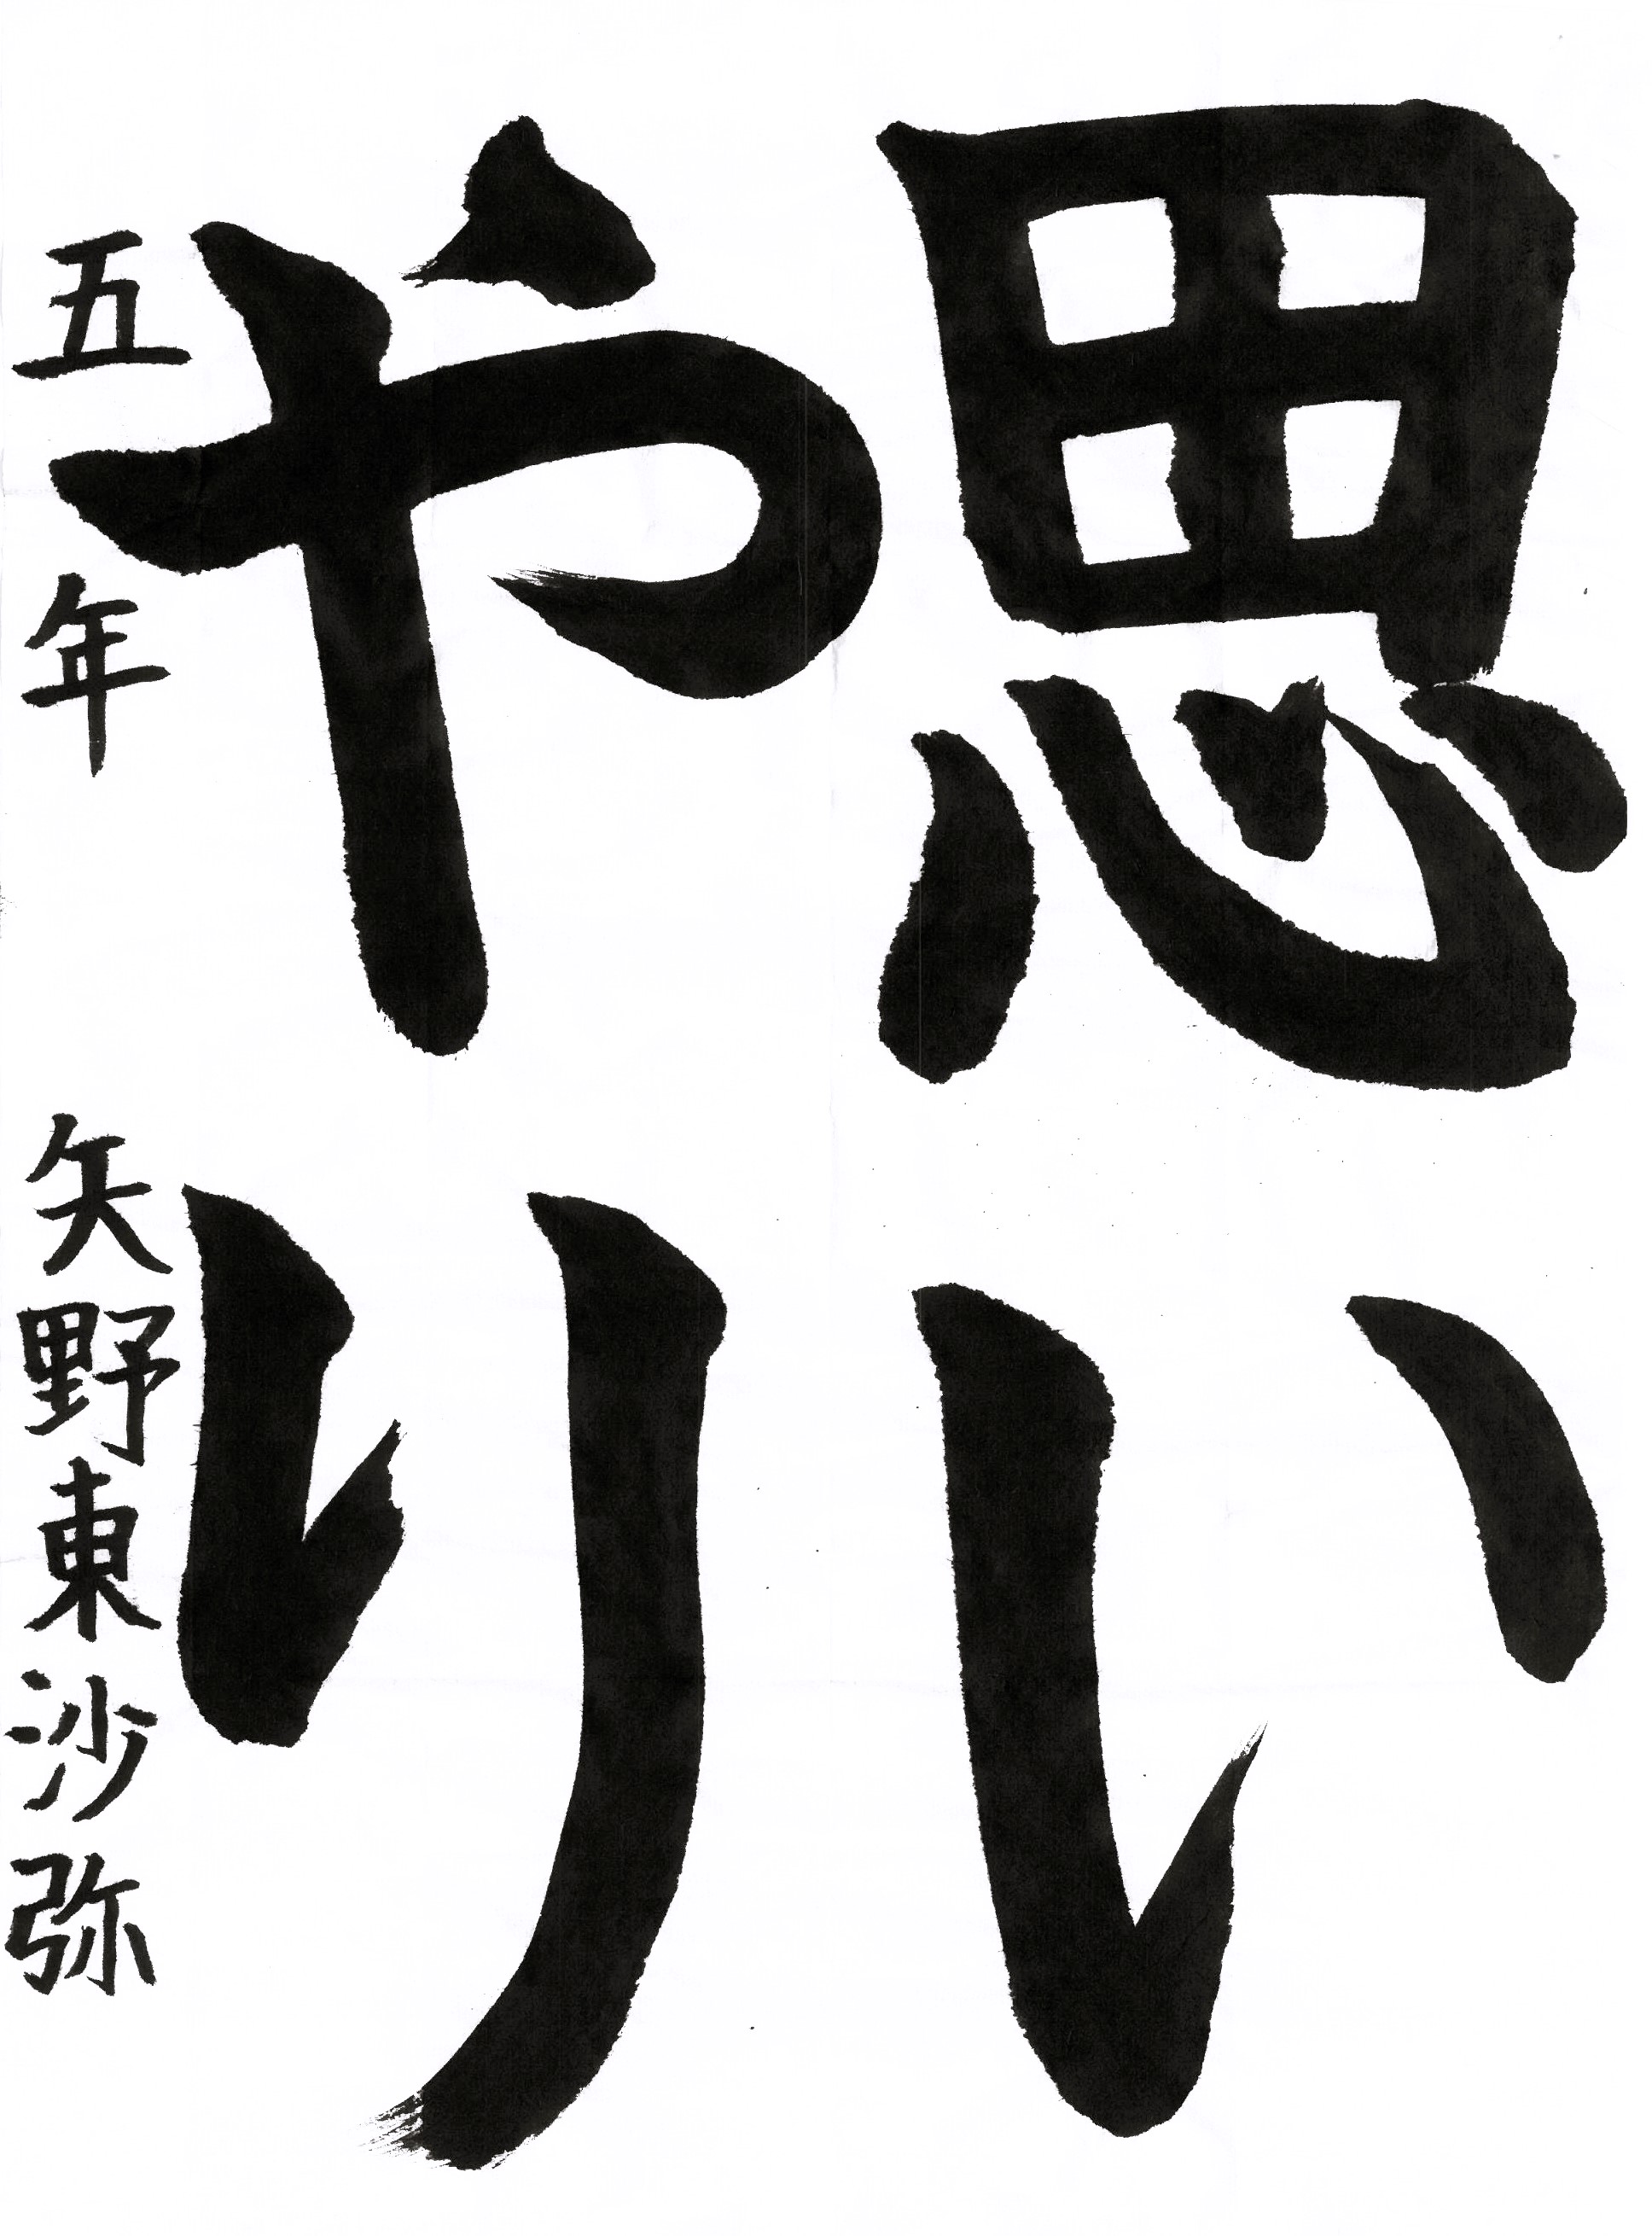 思い
やり
五年 矢野東沙弥